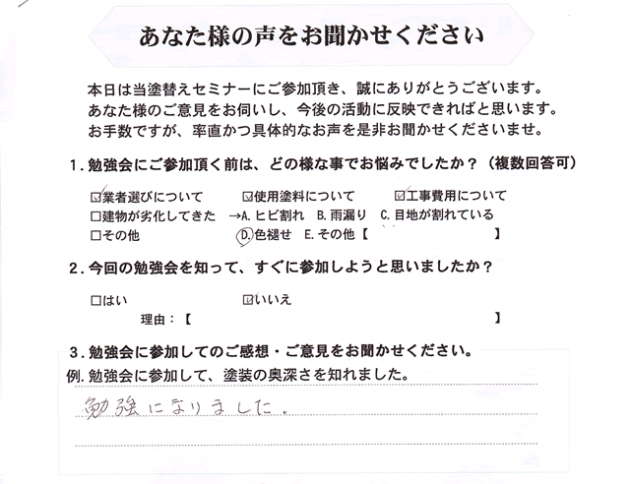 あなた様の声をお聞かせください
本日は当塗替えセミナーにご参加頂き、誠にありがとうございます。
あなた様のご意見をお伺いし、今後の活動に反映できればと思います。
お手数ですが、率直かつ具体的なお声を是非お聞かせくださいませ。
1.勉強会にご参加頂く前は、どの様な事でお悩みでしたか?(複数回答可)
☑業者選びについて ☑使用塗料について ☑工事費用について
□建物が劣化してきた →A. ヒビ割れ B. 雨漏り C. 目地が割れている
□その他 D.色褪せ E. その他【 】
2.今回の勉強会を知って、すぐに参加しようと思いましたか?
□はい ☑いいえ
理由:【 】
3.勉強会に参加してのご感想・ご意見をお聞かせください。
例. 勉強会に参加して、塗装の奥深さを知れました。
勉強になりました.